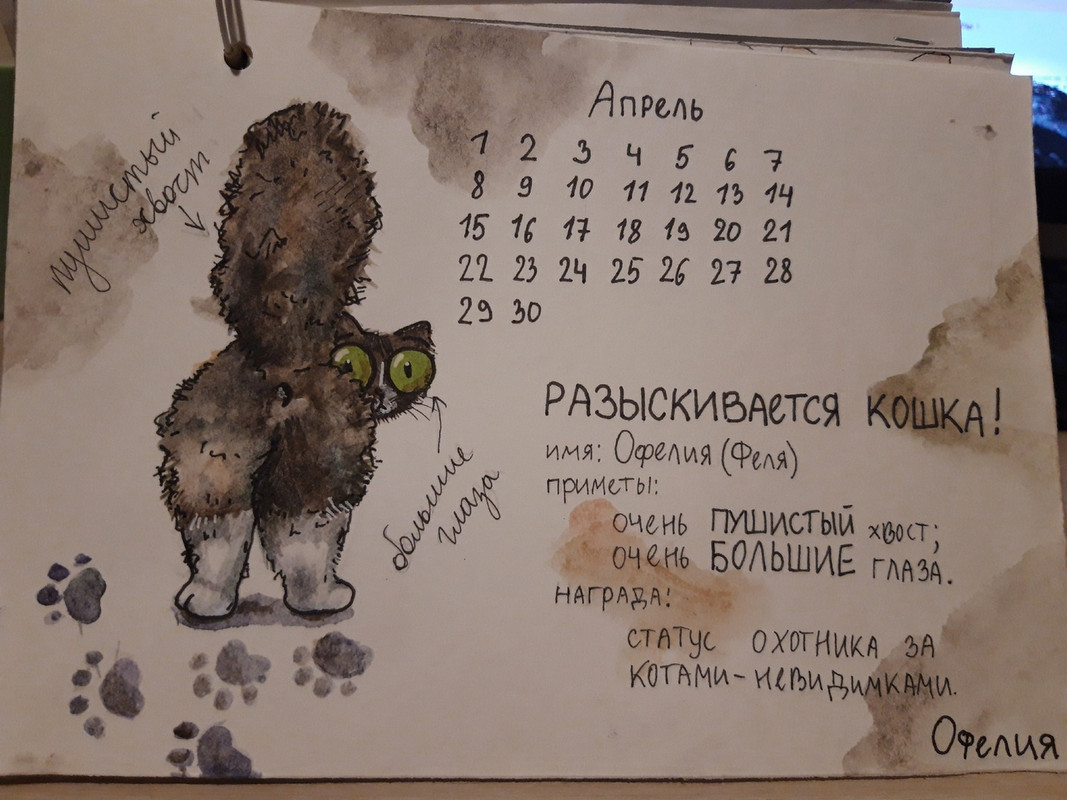 Апрель
1 2 3 4 5 6 7
8 9 10 11 12 13 14
15 16 17 18 19 20 21
22 23 24 25 26 27 28
29 30
пушистый
хвост
большие
глаза
РАЗЫСКИВАЕТСЯ КОШКА!
имя: Офелия (Феля)
приметы:
очень ПУШИСТЫЙ хвост;
очень БОЛЬШИЕ ГЛАЗА.
НАГРАДА:
СТАТУС ОХОТНИКА ЗА
КОТАМИ-НЕВИДИМКАМИ.
Офелия